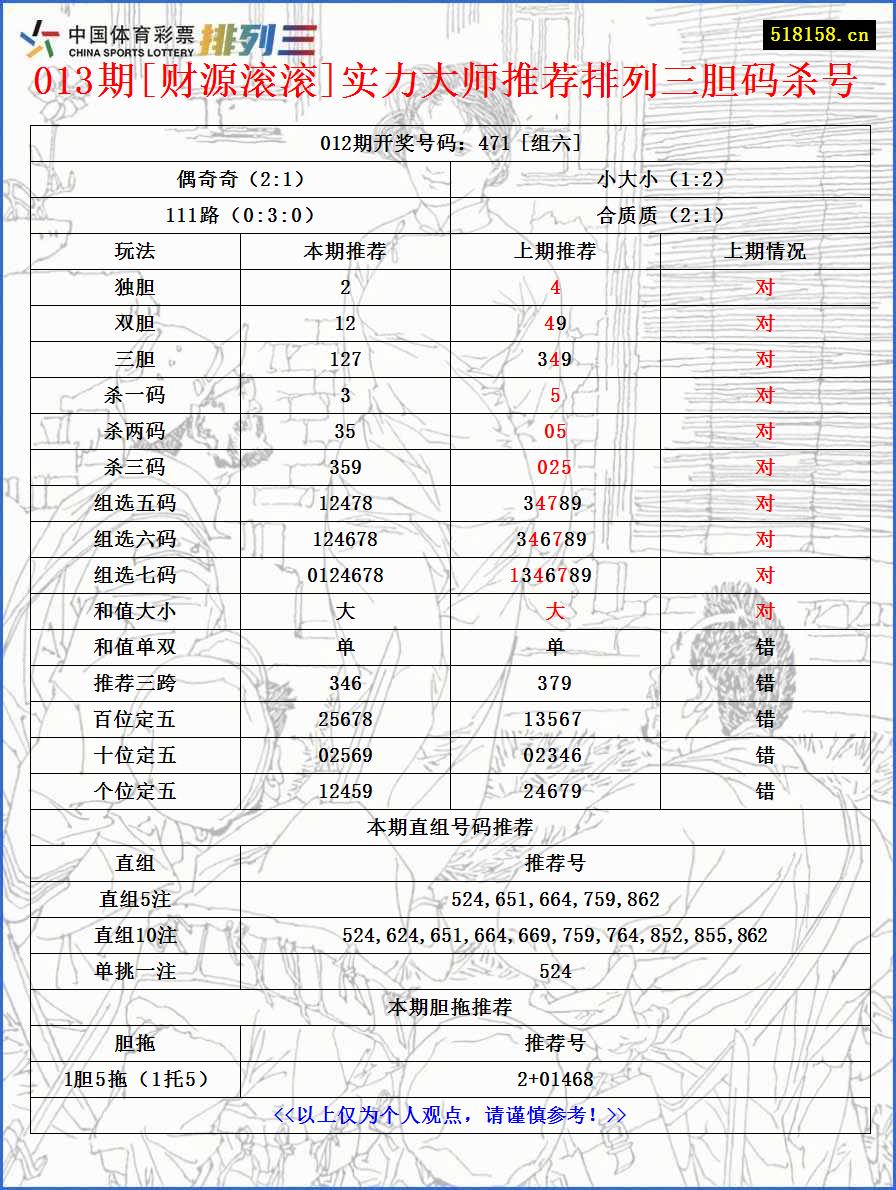 中国体育彩票 排列三
CHINA SPORTS LOTTERY
518158.cn
013期[财源滚滚]实力大师推荐排列三胆码杀号
012期开奖号码：471 [组六]
偶奇奇（2:1） 小大小（1:2）
111路（0:3:0） 合质质（2:1）
玩法 本期推荐 上期推荐 上期情况
独胆 2 4 对
双胆 12 49 对
三胆 127 349 对
杀一码 3 5 对
杀两码 35 05 对
杀三码 359 025 对
组选五码 12478 34789 对
组选六码 124678 346789 对
组选七码 0124678 1346789 对
和值大小 大 大 对
和值单双 单 单 错
推荐三跨 346 379 错
百位定五 25678 13567 错
十位定五 02569 02346 错
个位定五 12459 24679 错
本期直组号码推荐
直组 推荐号
直组5注 524,651,664,759,862
直组10注 524,624,651,664,669,759,764,852,855,862
单挑一注 524
本期胆拖推荐
胆拖 推荐号
1胆5拖（1托5） 2+01468
<<以上仅为个人观点，请谨慎参考！>>